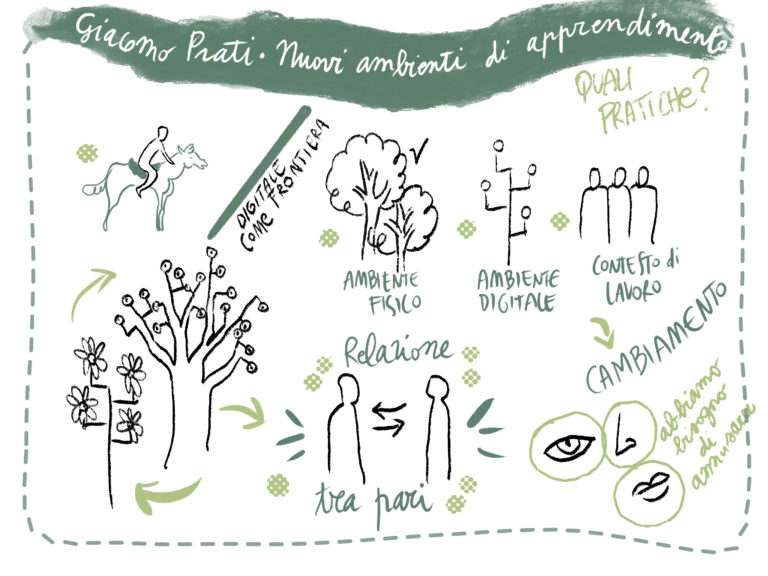 Giacomo Prati. Nuovi ambienti di apprendimento
QUALI
PRATICHE?
DIGITALE
COME FRONTIERA
AMBIENTE
FISICO
AMBIENTE
DIGITALE
CONTESTO di
LAVORO
CAMBIAMENTO
Relazione
tra pari
abbiamo
bisogno
di
annusare